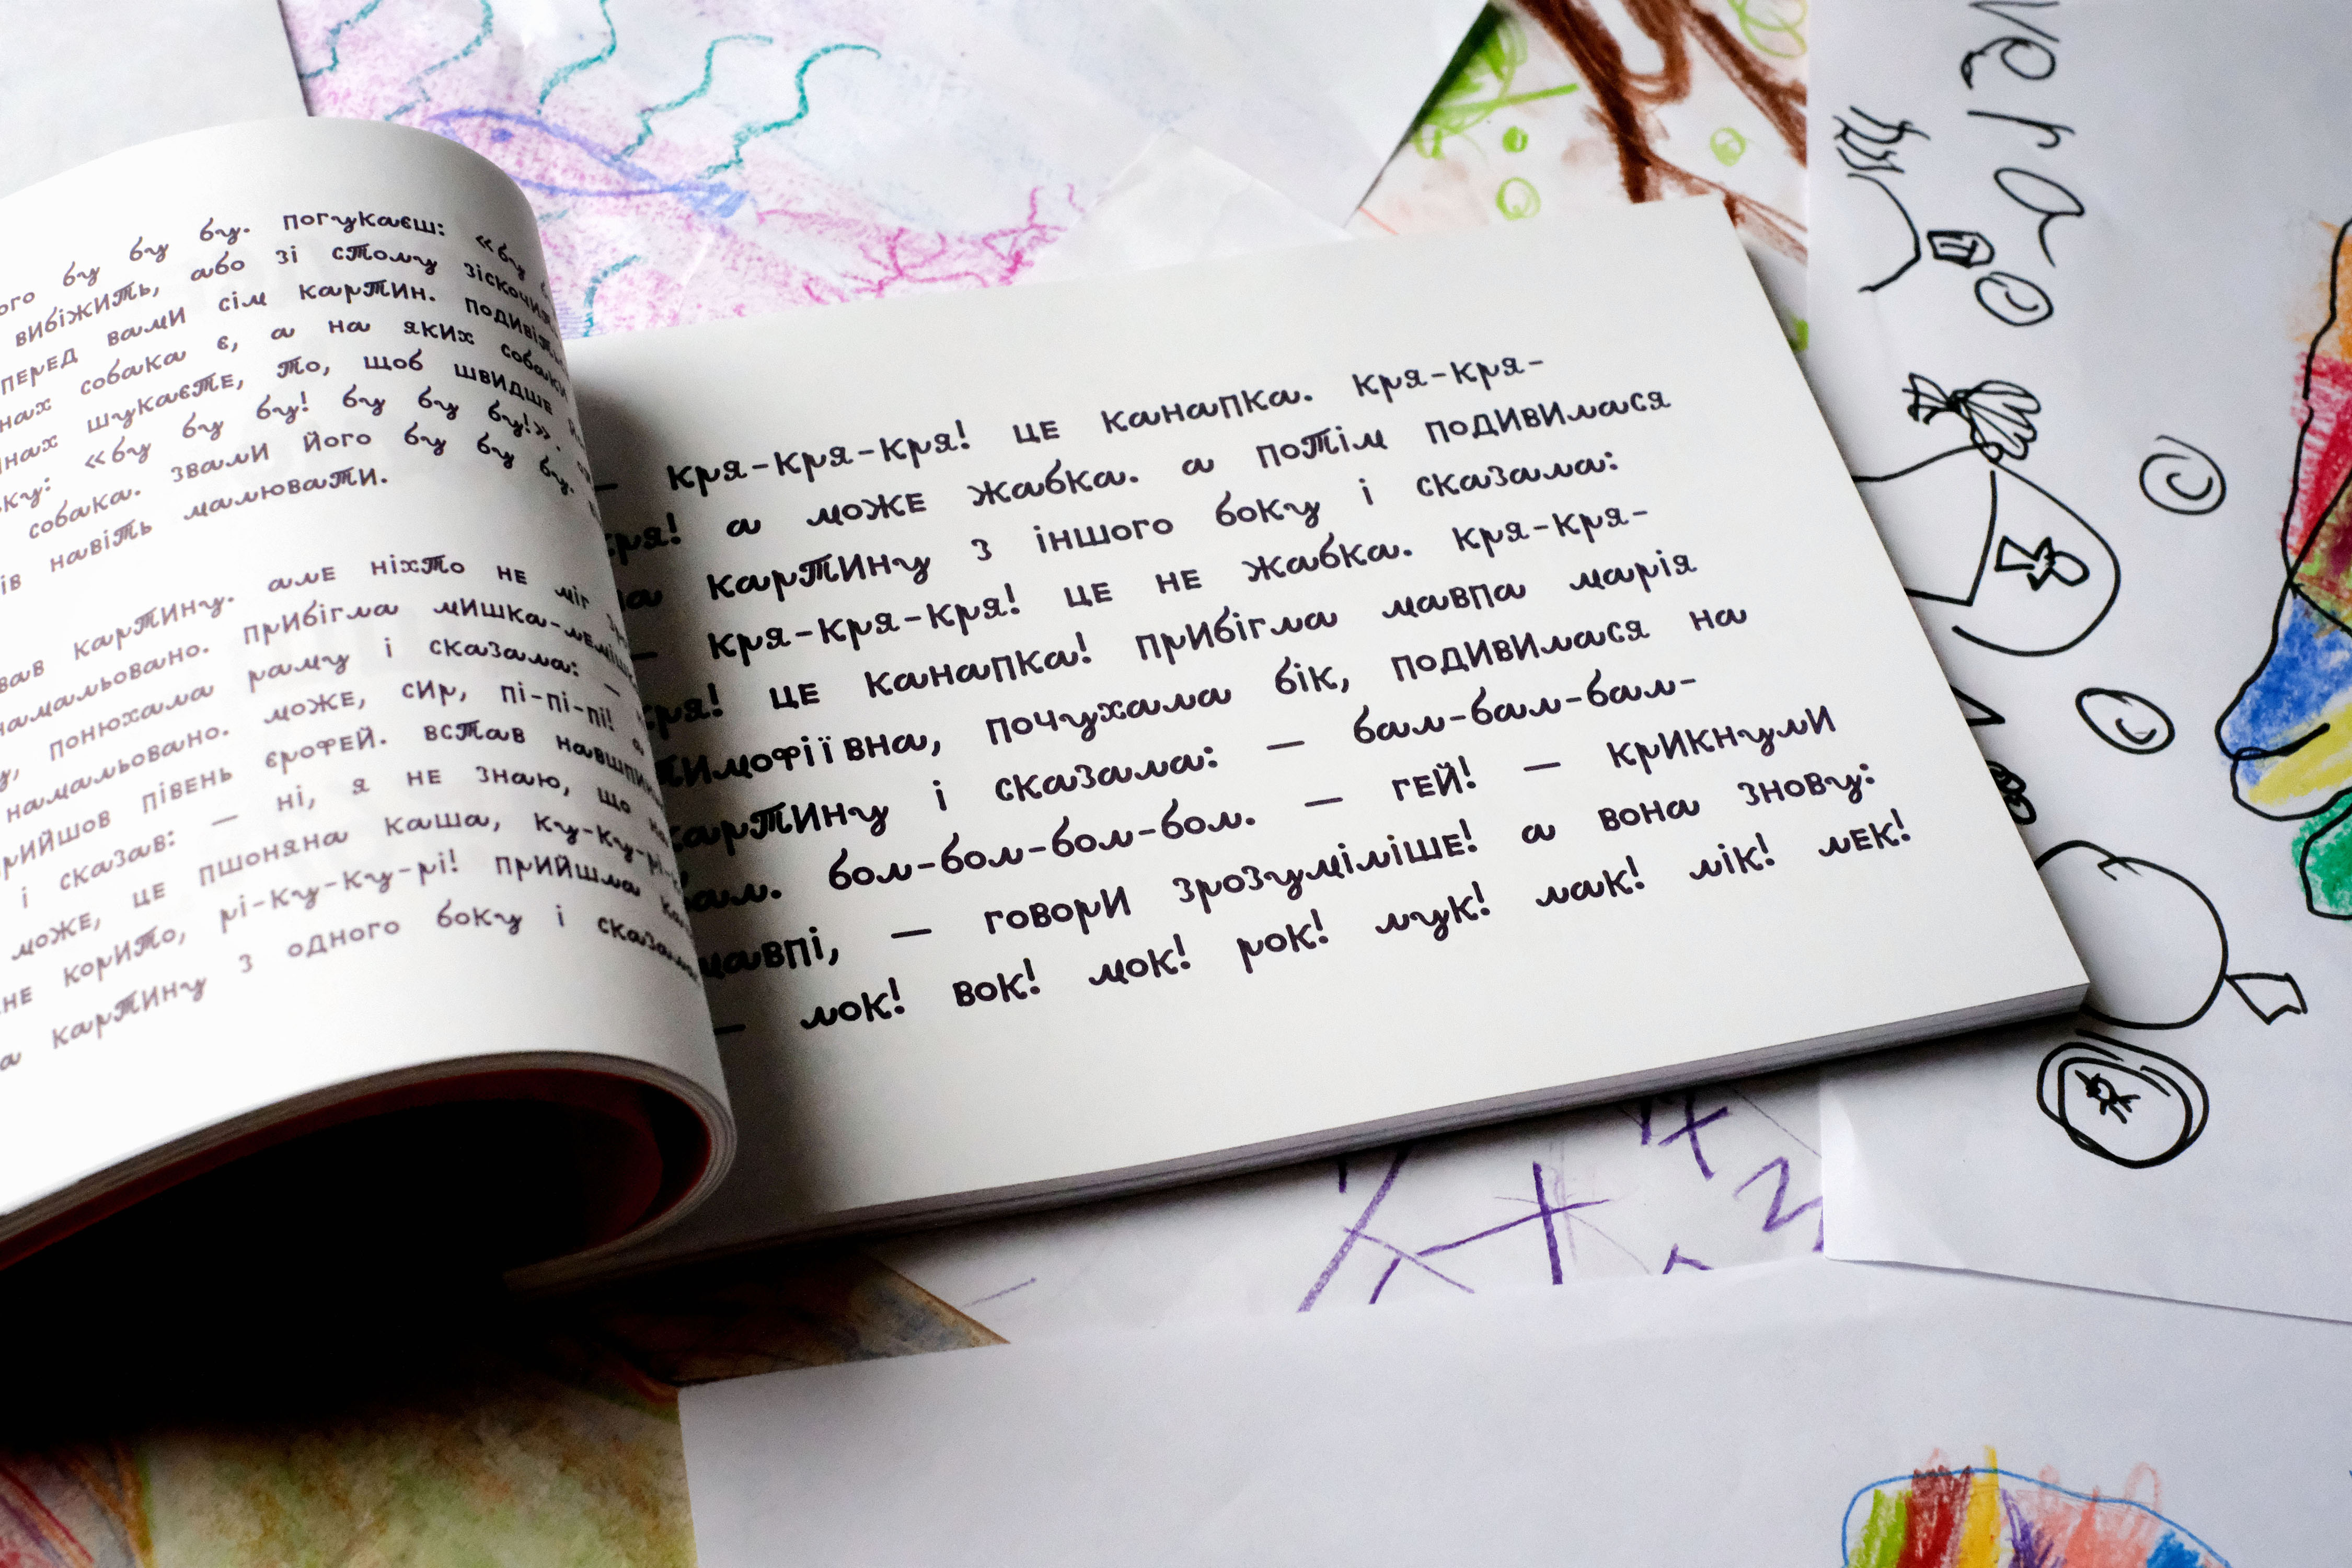 бу бу бу. погукаєш: «бу
вибіжить, або зі столу
перед вами сім картин.
собака є, а на яких
шукаєте, то, щоб швидше
«бу бу бу! бу бу бу!».
собака. звали його бу бу бу.
навіть малювати.
картину. але ніхто не міг
намальовано. прибігла мишка-
понюхала раму і сказала: —
намальовано. може, сир, пі-пі-пі!
півень єрофей. встав
і сказав: — ні, я не знаю, що
може, це пшоняна каша,
корито, рі-ку-ку-рі! прийшла
картину з одного боку і
— кря-кря-кря! це канапка. кря-кря-
кря! а може жабка. а потім подивилася
на картину з іншого боку і сказала:
— кря-кря-кря! це не жабка. кря-кря-
кря! це канапка! прибігла мавпа марія
тимофіївна, почухала бік, подивилася на
картину і сказала: — бал-бал-бал-
бал. бол-бол-бол-бол. — гей! — крикнули
мавпі, — говори зрозуміліше! а вона знову:
— лок! вок! мок! рок! лук! лак! лік! лек!
vera